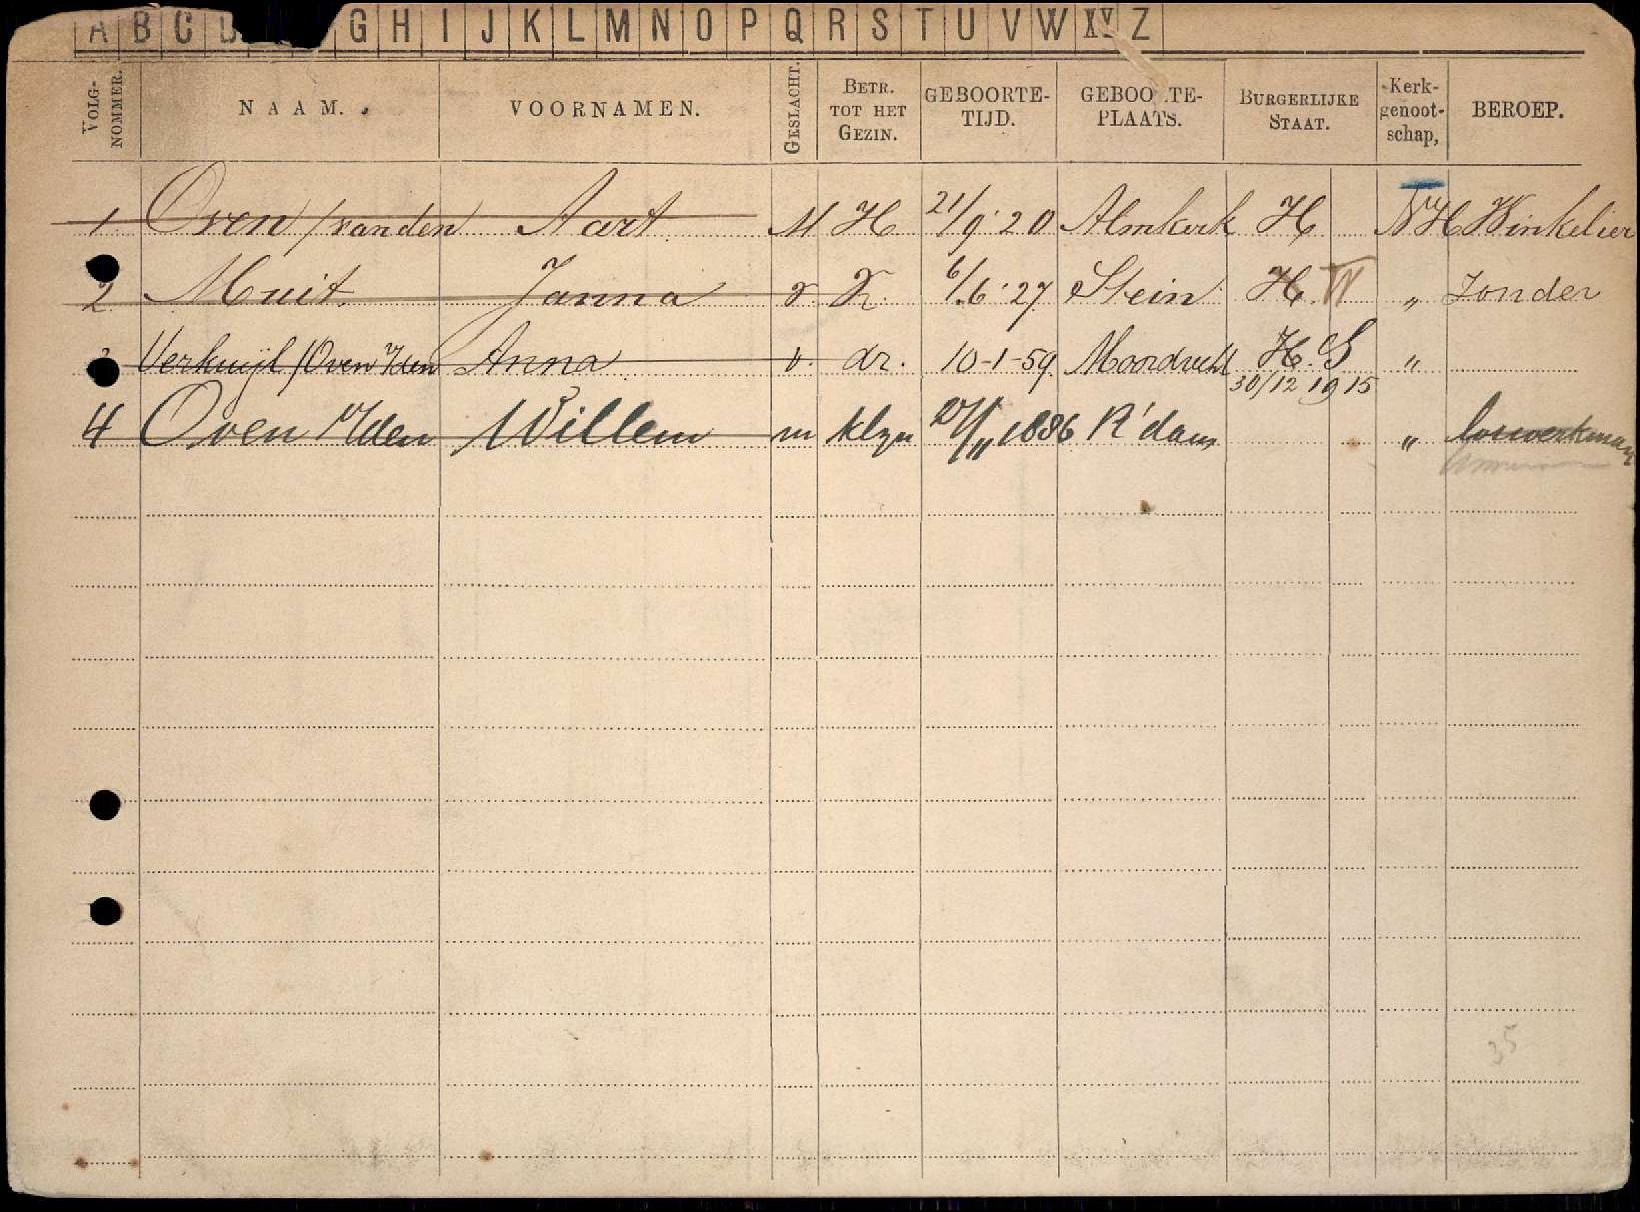 A B C D G H I J K L M N O P Q R S T U V W XY Z
VOLG-NOMMER. NAAM. VOORNAMEN. GESLACHT. BETR. TOT HET GEZIN. GEBOORTE-TIJD. GEBOO TE-PLAATS. BURGERLIJKE STAAT. Kerk-genoot-schap, BEROEP.
1 Oven /van den Aart M H 21/9 '20 Almkerk H NH Winkelier
2 Muit Janna v 6/6 '27 Stein H. W „ Zonder
3 Verkuijl /Oven v/den Anna v. dr. 10-1-59 Moordrecht H. S „
30/12 1915
4 Oven v/den Willem m klzn 1886 R'dam „ loswerkman
35